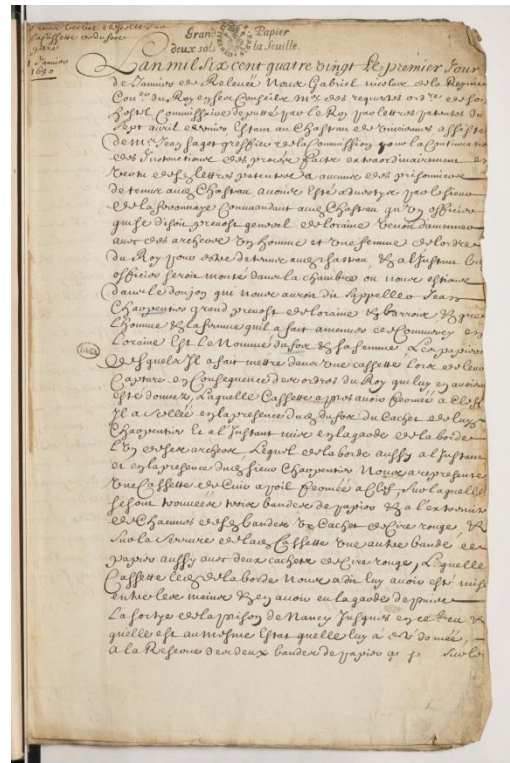 cassette dudufore
1 Janvier
1680
Grand Papier
deux sols la feuille.
Lan mil six cent quatre vingt Le premier Jour
de Janvier de Relevée Nous Gabriel nicolas de la Reynie
Con.er du Roy en ses Conseils M.e des requestes ord.re de son
hostel Commissaire deputté par le Roy par lettres patentes du
sept avril dernier Estant au Chasteau de Vincennes assisté
de M.e Jean sagot greffier de la Commission pour la Continuation
des Instructions des procès faits extraordinairement en
vertu desd. lettres patentes a aucuns des prisonniers
detenus aud. Chasteau, avons Esté advertys par le sieur
de la ferronnaye Commandant aud. Chasteau qu'un officier
qui se disoit prevost general de loraine venoit d'amener
avec des archers un homme et une femme de l'ordre
du Roy pour estre detenus aud. chasteau, & a l'Instant led.
officier seroit monté dans la chambre ou nous estions
dans le donjon qui nous auroit dit s'appeller Jean
Charpentier grand prevost de loraine & barrois & que
l'homme & la femme quil a fait amener de Commercy en
Loraine Est le Nommé dufore & sa femme, Les papiers
desquels Il a fait mettre dans une cassette lors de leur
Capture en Consequence des ordres du Roy qui luy en avoient
esté donnez, Laquelle Cassette apres avoir fermée a Clef
Il a scellée en la presence dud. dufore du Cachet de luy
Charpentier Et a l'Instant mise en la garde de la borde
l'un de ses archers, Lequel de la borde aussy a l'Instant
et en la presence dud. sieur Charpentier Nous a representé
une Cassette de Cuir a poil fermée a Clef, sur laquelle
se sont trouvées trois bandes de papier & a l'extremité
de Chacunes desd. bandes un Cachet de Cire rouge, &
sur la serrure de lad. Cassette une autre bande de
papier aussy avec deux cachets de Cire rouge, Laquelle
Cassette led. de la borde Nous a dit luy avoir esté mise
entre les mains & en avoir eu la garde depuis
la sortye de la prison de Nancy Jusques en ce lieu &
quelle est au mesme Estat quelle luy a esté donnée,
a la Reserve des deux bandes de papier qui sur les